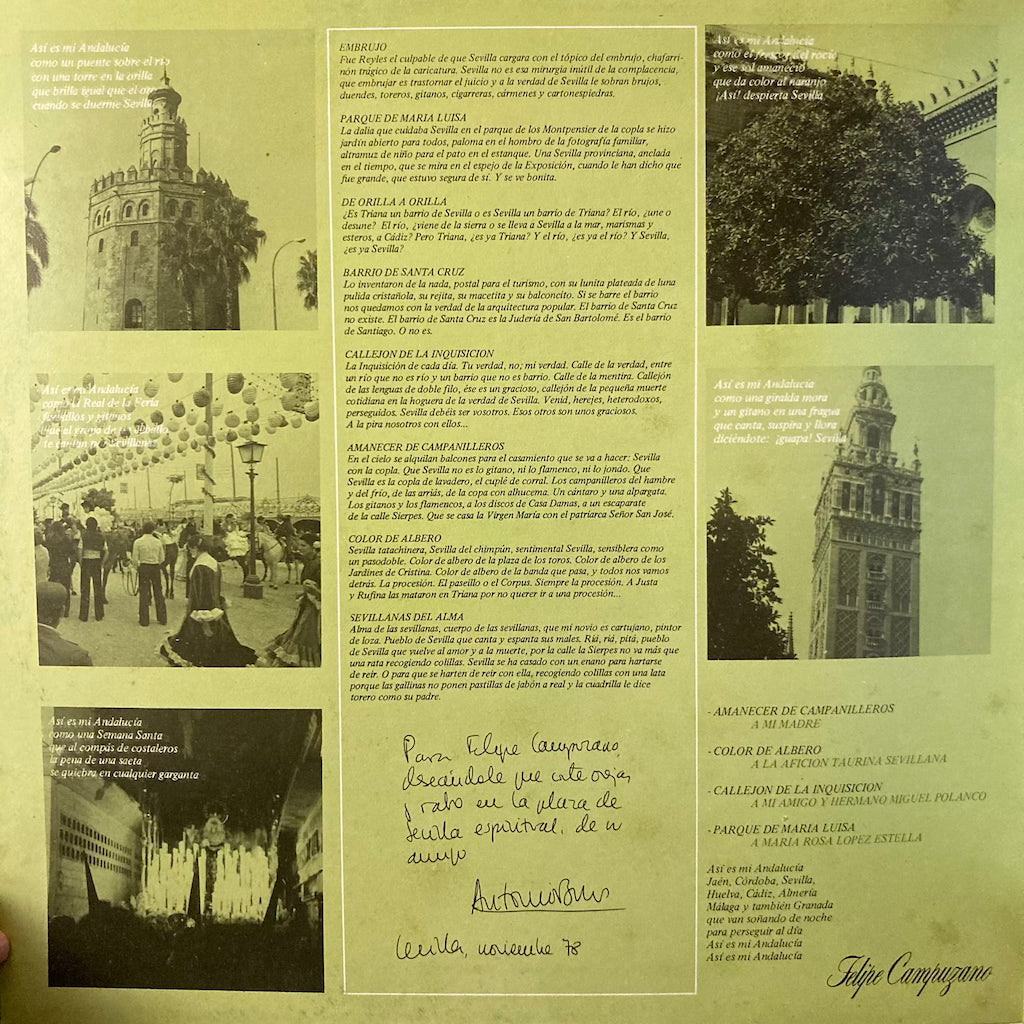 Así es mi Andalucía
como un puente sobre el río
con una torre en la orilla
que brilla igual que el oro
cuando se duerme Sevilla
Así es mi Andalucía
como Real de la Feria
y gitanos
Así es mi Andalucía
como una Semana Santa
que al compás de costaleros
la pena de una saeta
se quiebra en cualquier garganta
EMBRUJO
Fue Reyles el culpable de que Sevilla cargara con el tópico del embrujo, chafarri-
nón trágico de la caricatura. Sevilla no es esa minurgia inútil de la complacencia,
que embrujar es trastornar el juicio y a la verdad de Sevilla le sobran brujos,
duendes, toreros, gitanos, cigarreras, cármenes y cartonespiedras.
PARQUE DE MARIA LUISA
La dalia que cuidaba Sevilla en el parque de los Montpensier de la copla se hizo
jardín abierto para todos, paloma en el hombro de la fotografía familiar,
altramuz de niño para el pato en el estanque. Una Sevilla provinciana, anclada
en el tiempo, que se mira en el espejo de la Exposición, cuando le han dicho que
fue grande, que estuvo segura de sí. Y se ve bonita.
DE ORILLA A ORILLA
¿Es Triana un barrio de Sevilla o es Sevilla un barrio de Triana? El río, ¿une o
desune? El río, ¿viene de la sierra o se lleva a Sevilla a la mar, marismas y
esteros, a Cádiz? Pero Triana, ¿es ya Triana? Y el río, ¿es ya el río? Y Sevilla,
¿es ya Sevilla?
BARRIO DE SANTA CRUZ
Lo inventaron de la nada, postal para el turismo, con su lunita plateada de luna
pulida cristañola, su rejita, su macetita y su balconcito. Si se barre el barrio
nos quedamos con la verdad de la arquitectura popular. El barrio de Santa Cruz
no existe. El barrio de Santa Cruz es la Judería de San Bartolomé. Es el barrio
de Santiago. O no es.
CALLEJON DE LA INQUISICION
La Inquisición de cada día. Tu verdad, no; mi verdad. Calle de la verdad, entre
un río que no es río y un barrio que no es barrio. Calle de la mentira. Callejón
de las lenguas de doble filo, ése es un gracioso, callejón de la pequeña muerte
cotidiana en la hoguera de la verdad de Sevilla. Venid, herejes, heterodoxos,
perseguidos. Sevilla debéis ser vosotros. Esos otros son unos graciosos.
A la pira nosotros con ellos...
AMANECER DE CAMPANILLEROS
En el cielo se alquilan balcones para el casamiento que se va a hacer: Sevilla
con la copla. Que Sevilla no es lo gitano, ni lo flamenco, ni lo jondo. Que
Sevilla es la copla de lavadero, el cuplé de corral. Los campanilleros del hambre
y del frío, de las arriás, de la copa con alhucema. Un cántaro y una alpargata.
Los gitanos y los flamencos, a los discos de Casa Damas, a un escaparate
de la calle Sierpes. Que se casa la Virgen María con el patriarca Señor San José.
COLOR DE ALBERO
Sevilla tatachinera, Sevilla del chimpún, sentimental Sevilla, sensiblera como
un pasodoble. Color de albero de la plaza de los toros. Color de albero de los
Jardines de Cristina. Color de albero de la banda que pasa, y todos nos vamos
detrás. La procesión. El paseíllo o el Corpus. Siempre la procesión. A Justa
y Rufina las mataron en Triana por no querer ir a una procesión...
SEVILLANAS DEL ALMA
Alma de las sevillanas, cuerpo de las sevillanas, que mi novio es cartujano, pintor
de loza. Pueblo de Sevilla que canta y espanta sus males. Riá, riá, pitá, pueblo
de Sevilla que vuelve al amor y a la muerte, por la calle la Sierpes no va más que
una rata recogiendo colillas. Sevilla se ha casado con un enano para hartarse
de reír. O para que se harten de reír con ella, recogiendo colillas con una lata
porque las gallinas no ponen pastillas de jabón a real y la cuadrilla le dice
torero como su padre.
Para Felipe Campuzano,
deseándole que corte orejas
y rabo en la plaza de
Sevilla espiritual, de su
amigo
Antonio Burgos
Sevilla, noviembre 78
Así es mi Andalucía
como el frescor del rocío
y ese sol amaneció
que da color al naranjo
¡Así! despierta Sevilla
Así es mi Andalucía
como una giralda mora
y un gitano en una fragua
que canta, suspira y llora
diciéndote: ¡guapa! Sevilla
- AMANECER DE CAMPANILLEROS
A MI MADRE
- COLOR DE ALBERO
A LA AFICION TAURINA SEVILLANA
- CALLEJON DE LA INQUISICION
A MI AMIGO Y HERMANO MIGUEL POLANCO
- PARQUE DE MARIA LUISA
A MARIA ROSA LOPEZ ESTELLA
Así es mi Andalucía
Jaén, Córdoba, Sevilla,
Huelva, Cádiz, Almería
Málaga y también Granada
que van soñando de noche
para perseguir al día
Así es mi Andalucía
Así es mi Andalucía
Felipe Campuzano